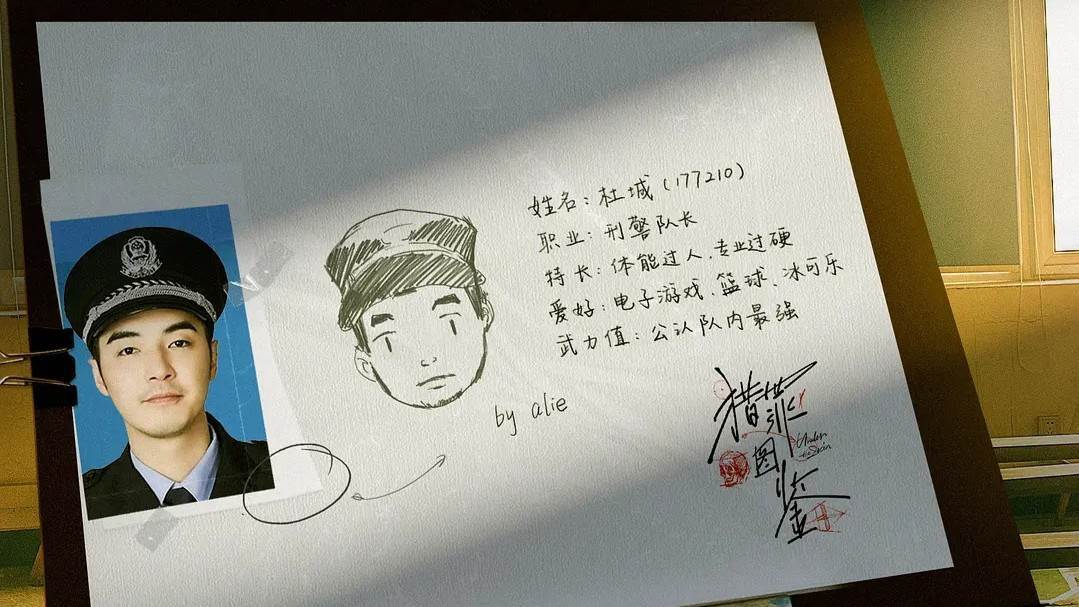 姓名：杜城（177210）
职业：刑警队长
特长：体能过人、专业过硬
爱好：电子游戏、篮球、冰可乐
武力值：公认队内最强
by alie
猎罪
图
鉴
Under
the Skin